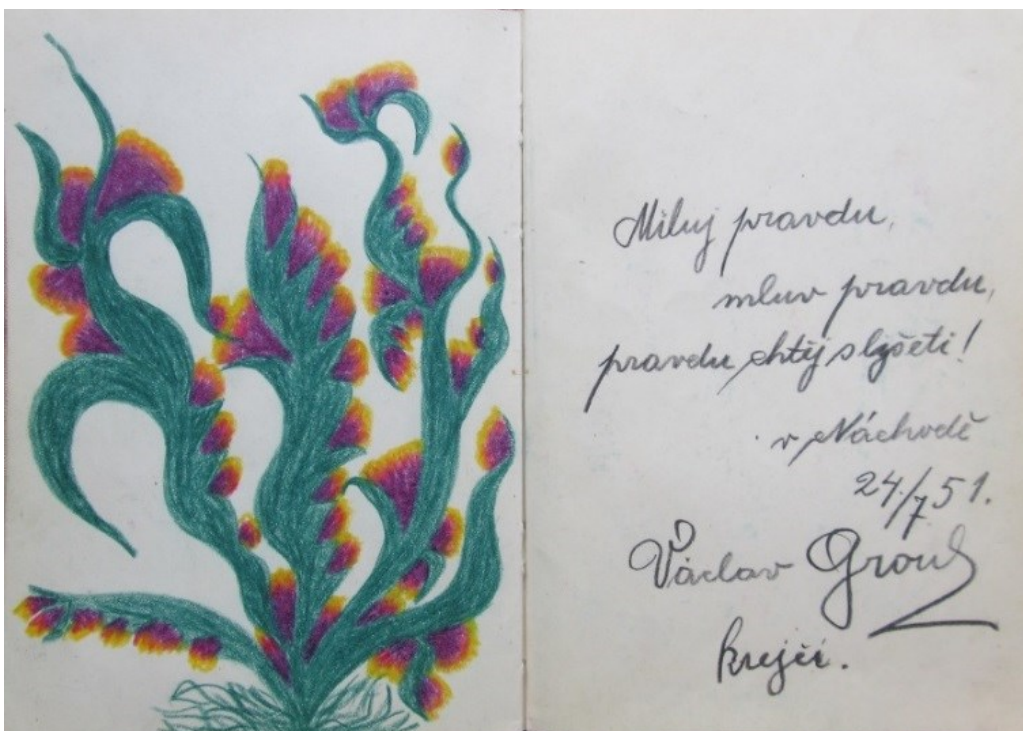 Miluj pravdu,
mluv pravdu,
pravdu chtěj slyšeti!
v Náchodě
24./7.51.
Václav Groul
krejčí.